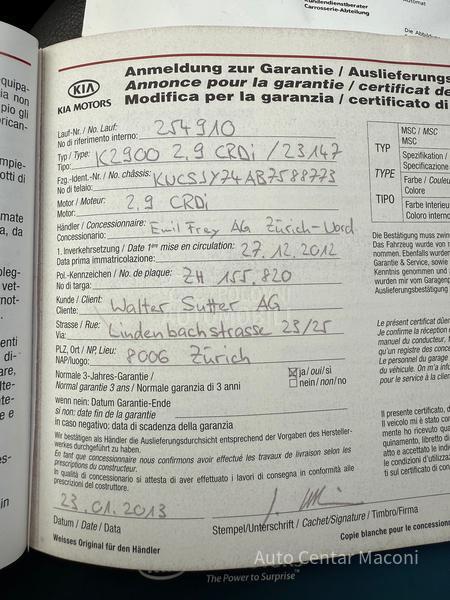 Kundendienstberater
Carrosserie-Abteilung
Automat
Die Abbildung
KIA
KIA MOTORS
Anmeldung zur Garantie / Auslieferungs
Annonce pour la garantie / certificat de
Modifica per la garanzia / certificato di
Lauf-Nr. / No. Lauf:
No di riferimento interno: 254910
Typ / Type:
Tipo: K2900 2,9 CRDi / 23147
Fzg.-Ident.-Nr. / No. châssis:
No di telaio: KUCSJY74AB7588773
Motor / Moteur:
Motor: 2,9 CRDi
Händler / Concessionnaire:
Concessionario: Emil Frey AG Zürich-Nord
1. Inverkehrsetzung / Date 1ère mise en circulation:
Data prima immatricolazione: 27.12.2012
Pol.-Kennzeichen / No. de plaque:
No di targa: ZH 155.820
Kunde / Client:
Cliente: Walter Sutter AG
Strasse / Rue:
Via: Lindenbachstrasse 23/25
PLZ, Ort / NP, Lieu:
NAP/luogo: 8006 Zürich
Normale 3-Jahres-Garantie /
Normal garantie 3 ans / Normale garanzia di 3 anni
ja/oui/si
nein/non/no
wenn nein: Datum Garantie-Ende
si non: date fin de la garantie
in caso negativo: data di scadenza della garanzia
Wir bestätigen als Händler die Auslieferungsdurchsicht entsprechend der Vorgaben des Hersteller-
werkes durchgeführt zu haben.
En tant que concessionnaire nous confirmons avoir effectué les travaux de livraison selon les
prescriptions du constructeur.
In qualità di concessionario si attesta di aver effettuato i lavori di consegna in conformità alle
prescrizioni del costruttore.
23.01.2013
Datum / Date / Data
Stempel/Unterschrift / Cachet/Signature / Timbro/Firma
Weisses Original für den Händler
Copie blanche pour le concession
TYP
TYPE
TIPO
MSC / MSC
MSC
Spezifikation /
Specificazione
Farbe / Couleu
Colore
Farbe Interieu
Colore interno
Die Bestätigung muss zwin
Das Fahrzeug wurde von m
nommen. Ebenfalls wurden
Garantie & Service, sowie
Kenntnis genommen und
wurden mir vom Garagen
Auslieferungsbestätigung
Le présent certificat dûe
Je confirme la réception
manuel du conducteur, N
qu'un registre des concess
Le personnel du garage
du véhicule. On m'a infor
pour le service à la clien
Il presente certificato, d
Il veicolo mi è stato con
erano in perfetto ordine
quinamento, libretto di
atto e accettato le indic
le condizioni d'utilizzaz
ti sul certificato di con
KIA
The Power to Surprise™
Auto Centar Maconi